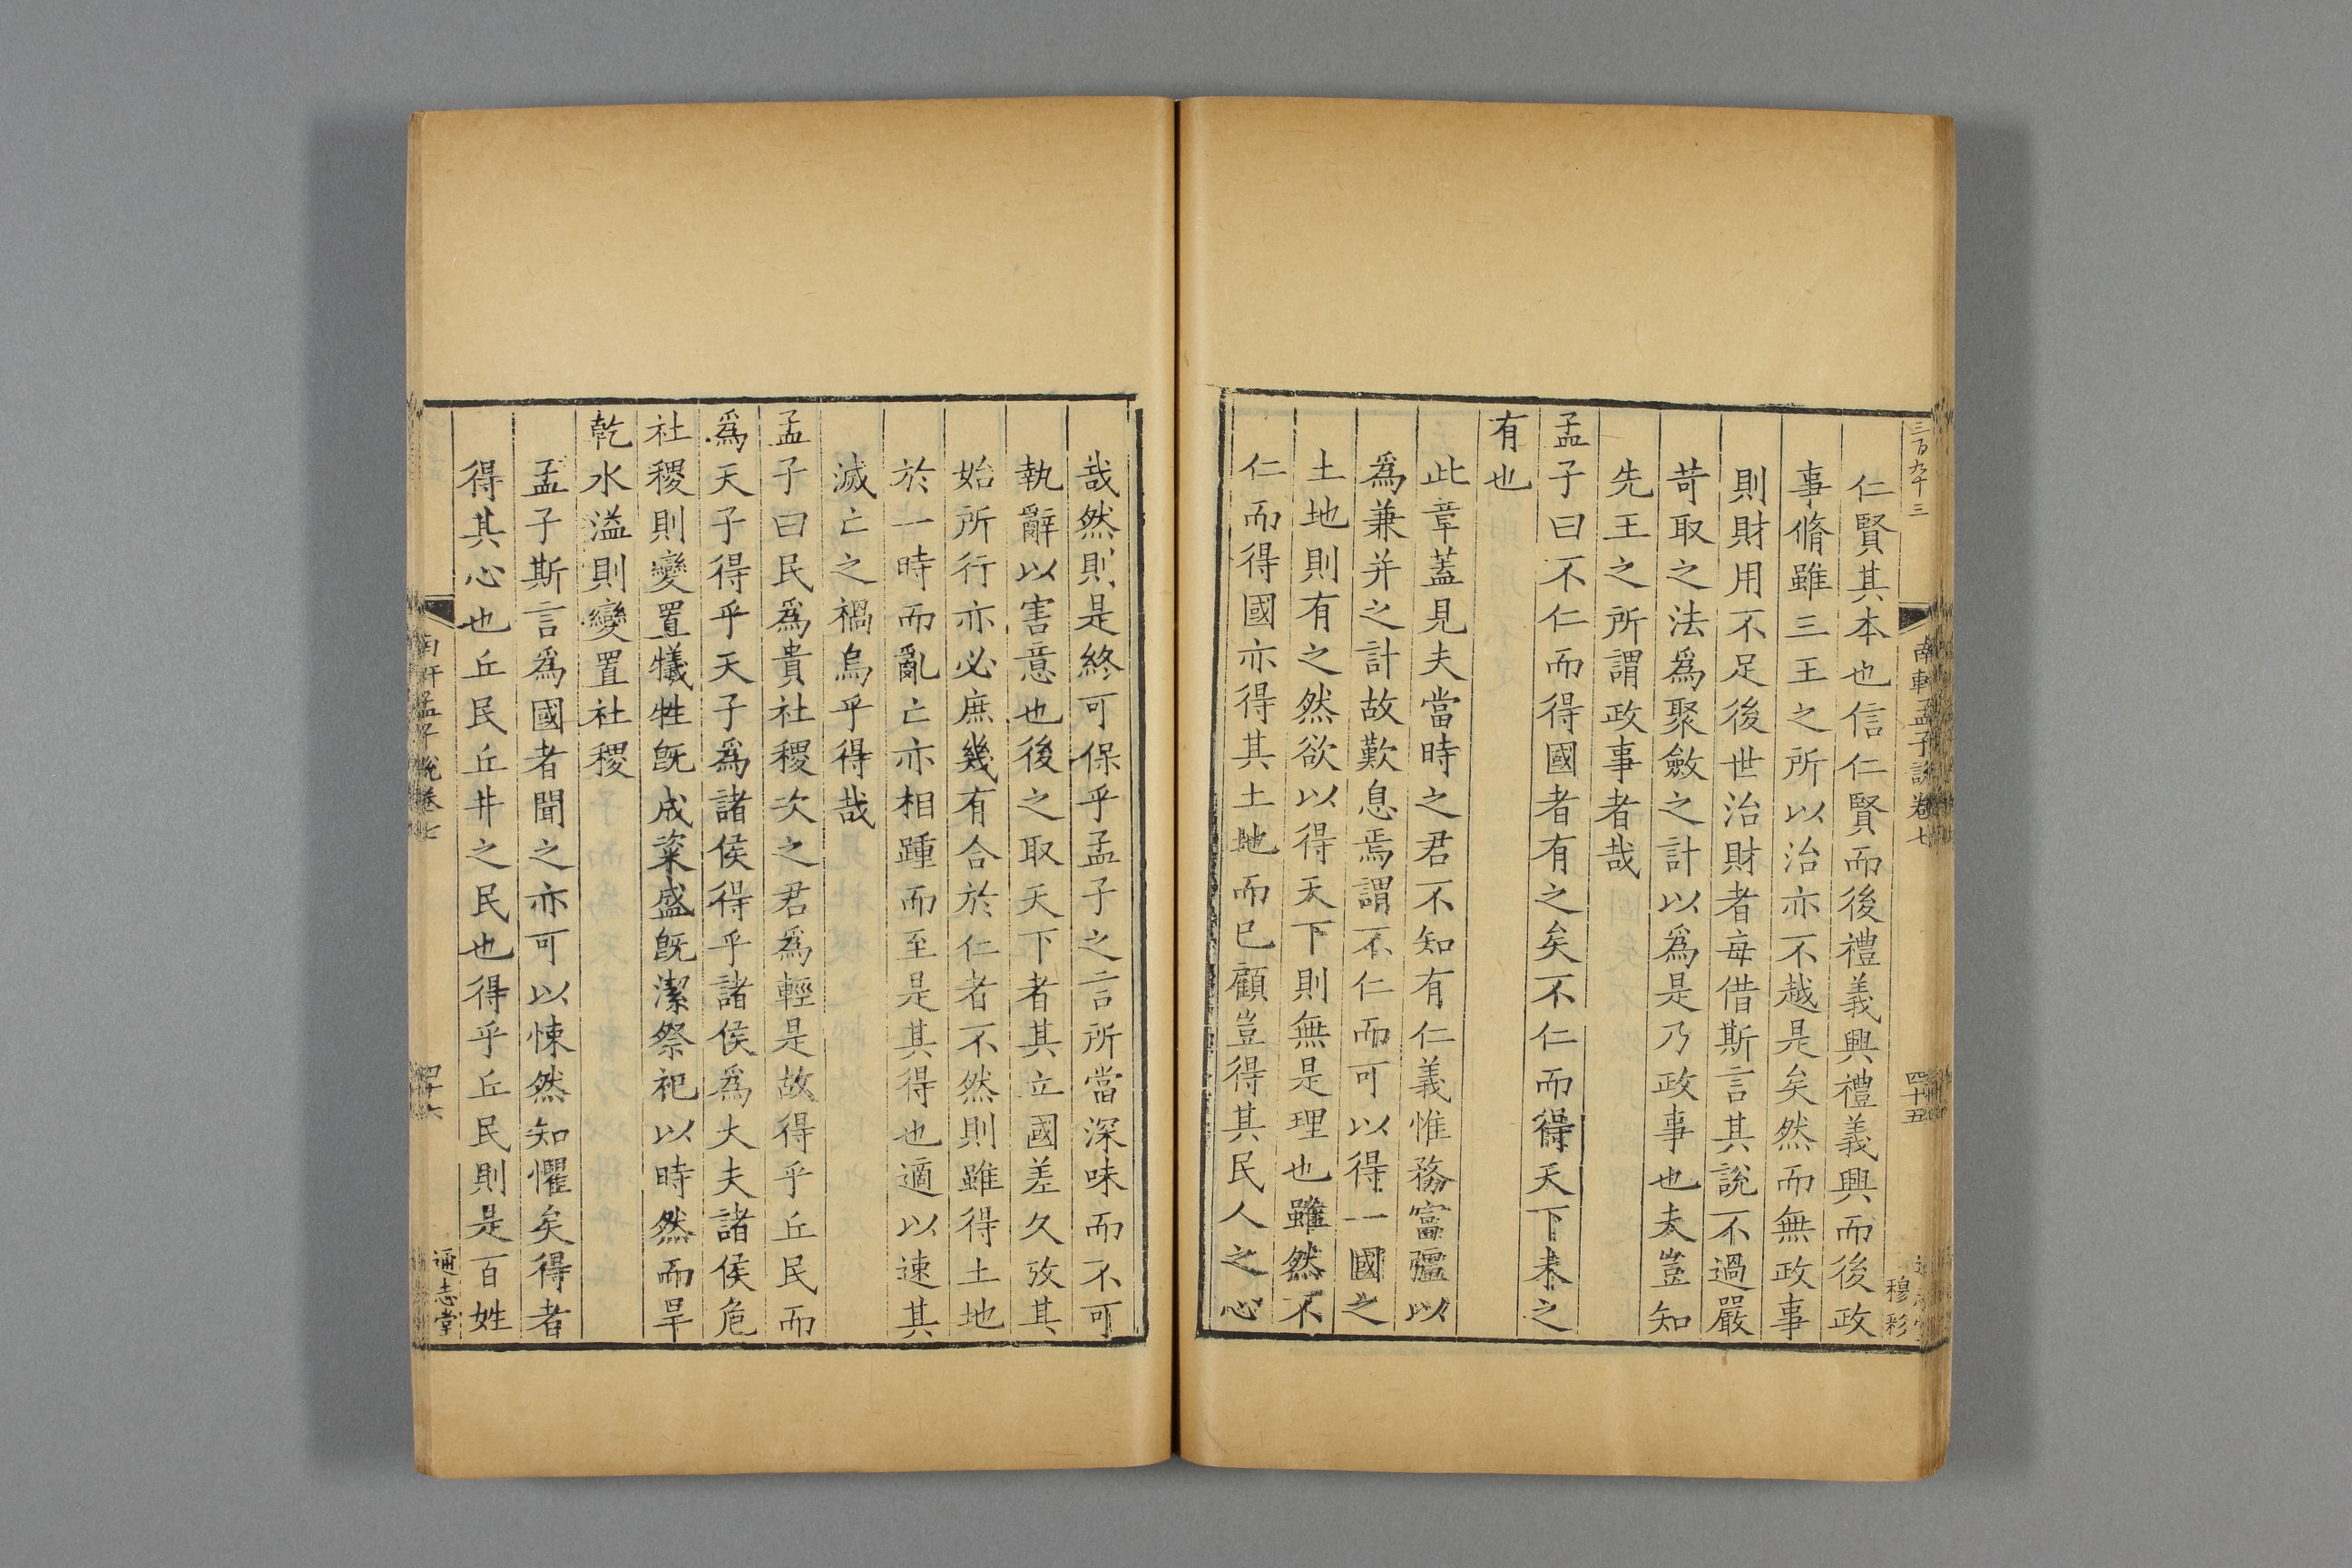 三百九十三
南軒孟子說卷七
四十五
穆彩
仁賢其本也信仁賢而後禮義興禮義興而後政
事脩雖三王之所以治亦不越是矣然而無政事
則財用不足後世治財者每借斯言其說不過嚴
苛取之法爲聚斂之計以爲是乃政事也夫豈知
先王之所謂政事者哉
孟子曰不仁而得國者有之矣不仁而得天下未之
有也
此章蓋見夫當時之君不知有仁義惟務富彊以
爲兼并之計故歎息焉謂不仁而可以得一國之
土地則有之然欲以得天下則無是理也雖然不
仁而得國亦得其土地而已顧豈得其民人之心
哉然則是終可保乎孟子之言所當深味而不可
執辭以害意也後之取天下者其立國差久攷其
始所行亦必庶幾有合於仁者不然則雖得土地
於一時而亂亡亦相踵而至是其得也適以速其
滅亡之禍烏乎得哉
孟子曰民爲貴社稷次之君爲輕是故得乎丘民而
爲天子得乎天子爲諸侯得乎諸侯爲大夫諸侯危
社稷則變置犧牲旣成粢盛旣潔祭祀以時然而旱
乾水溢則變置社稷
孟子斯言爲國者聞之亦可以悚然知懼矣得者
得其心也丘民丘井之民也得乎丘民則是百姓
南軒孟子說卷七
四十六
通志堂